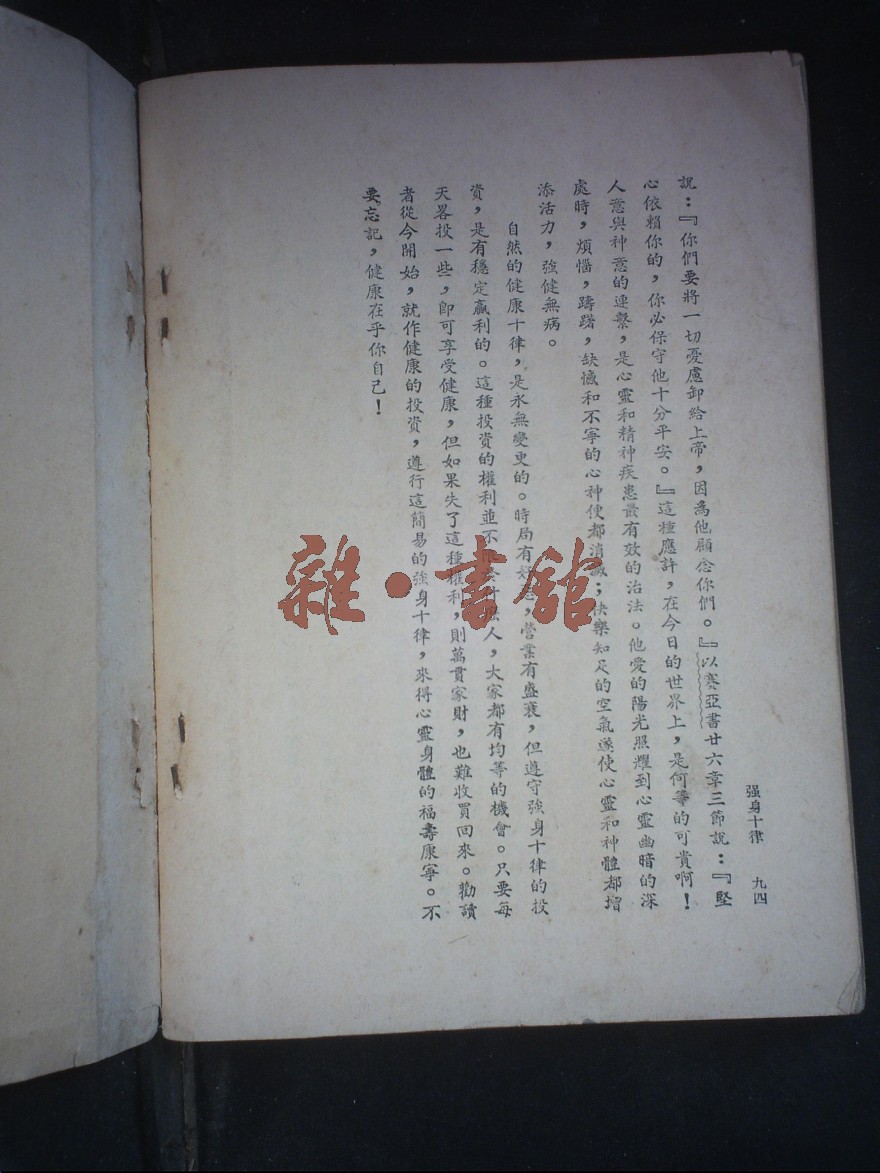 强身十律 九四
說：『你們要將一切憂慮卸給上帝，因爲他顧念你們。』以賽亞書廿六章三節說：『堅
心依賴你的，你必保守他十分平安。』這種應許，在今日的世界上，是何等的可貴啊！
人意與神意的連繫，是心靈和精神疾患最有效的治法。他愛的陽光照耀到心靈幽暗的深
處時，煩惱，躊躇，缺憾和不寧的心神便都消滅；快樂知足的空氣遂使心靈和神體都增
添活力，強健無病。
自然的健康十律，是永無變更的。時局有好，營業有盛衰，但遵守強身十律的投
資，是有穩定贏利的。這種投資的權利並不人，大家都有均等的機會。只要每
天畧投一些，卽可享受健康，但如果失了這種權利，則萬貫家財，也難收買回來。勸讀
者從今開始，就作健康的投資，遵行這簡易的強身十律，來得心靈身體的福壽康寧。不
要忘記，健康在乎你自己！
雜·書館